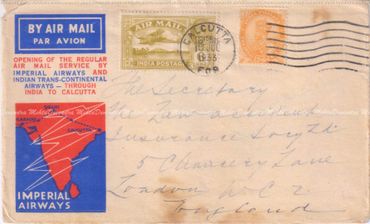 BY AIR MAIL
PAR AVION
OPENING OF THE REGULAR
AIR MAIL SERVICE BY
IMPERIAL AIRWAYS AND
INDIAN TRANS-CONTINENTAL
AIRWAYS — THROUGH
INDIA TO CALCUTTA
DELHI
KARACHI
CALCUTTA
IMPERIAL
AIRWAYS
AIR MAIL
INDIA POSTAGE
CALCUTTA
1933
The Secretary
The Law accident
Insurance Society
5 Chancery Lane
London W C 2
England